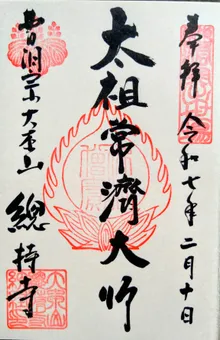 奉拝 令和七年 二月十日
太祖常濟大師
曹洞宗大本山 總持寺